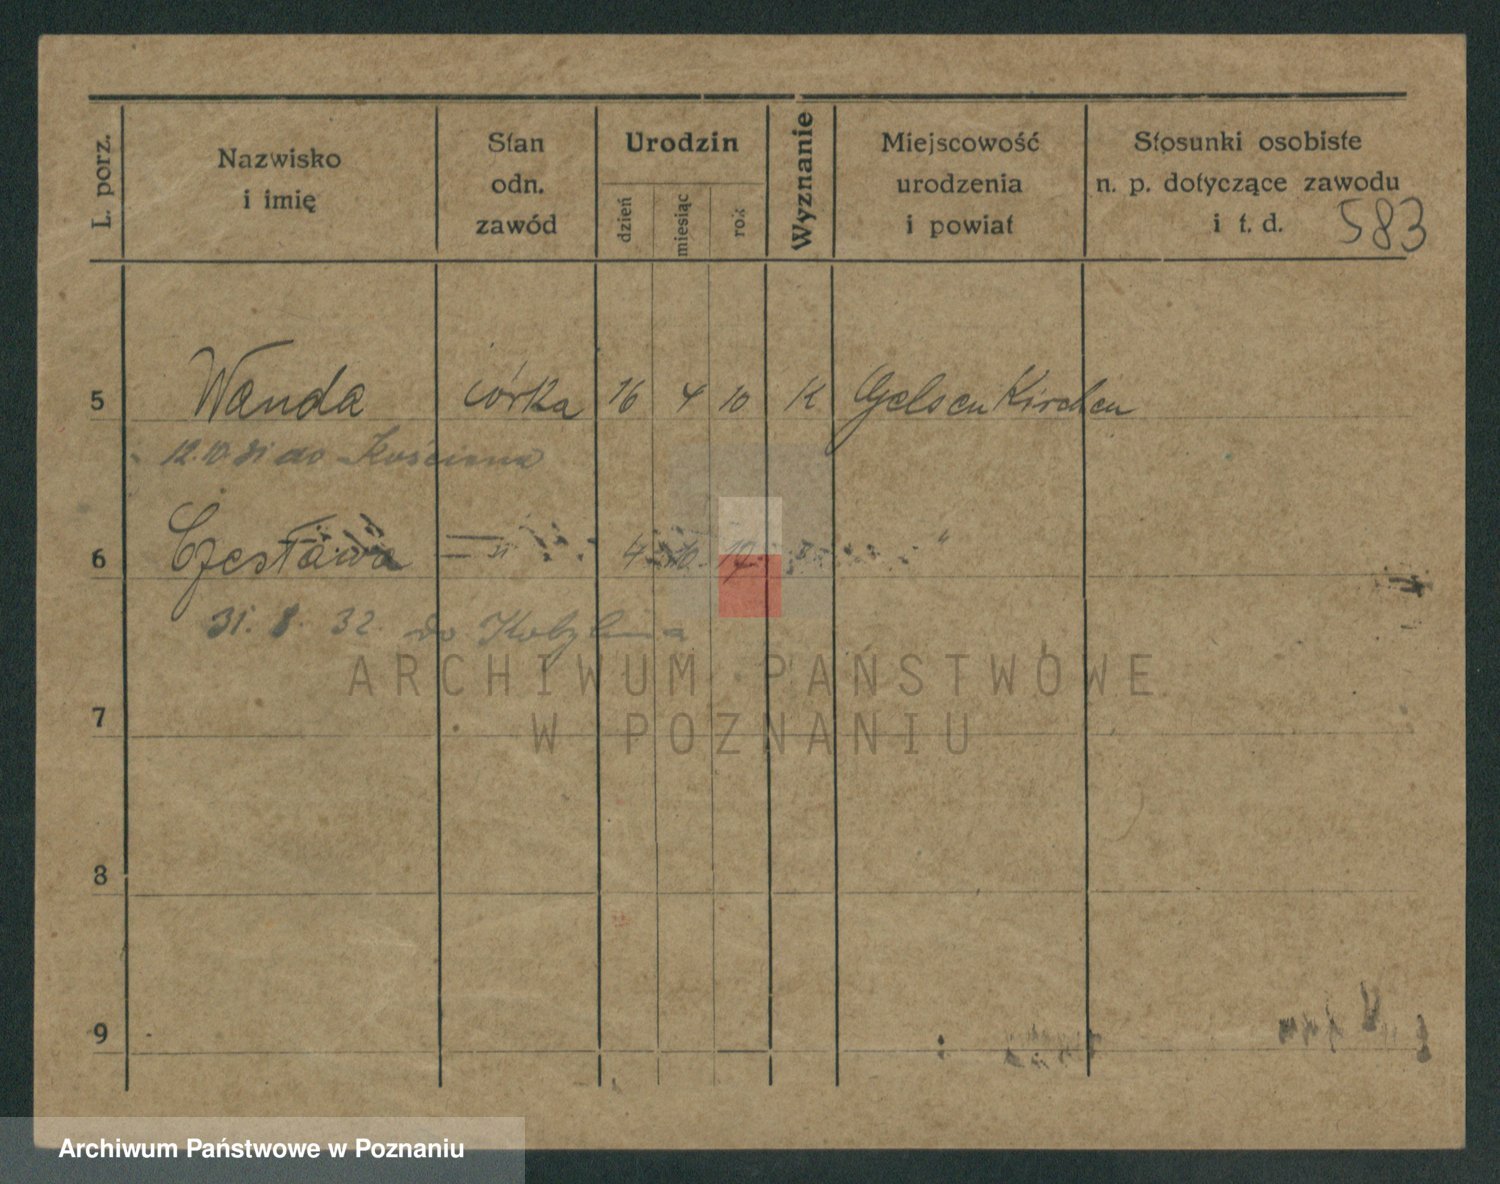 L. porz.
Nazwisko
i imię
Stan
odn.
zawód
Urodzin
dzień
miesiąc
rok
Wyznanie
Miejscowość
urodzenia
i powiat
Stosunki osobiste
n. p. dotyczące zawodu
i t. d.
583
5 Wanda córka 16 4 10 K Gelsenkirchen
12.10 31 do Kościana
6 Czesława " 4 10 "
31. 8. 32 do Kobylina
ARCHIWUM PAŃSTWOWE
W POZNANIU
7
8
9
Archiwum Państwowe w Poznaniu